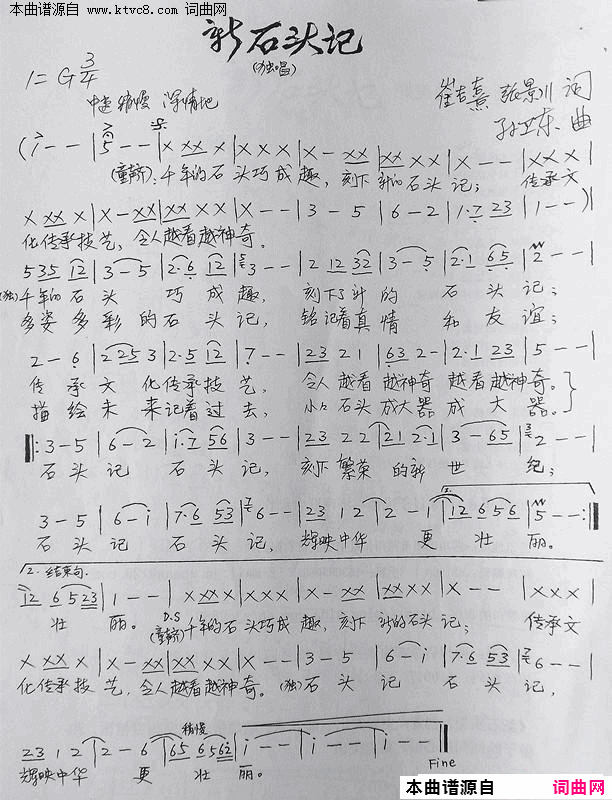 本曲谱源自 www.ktvc8.com 词曲网
新石头记
(独唱)
1=G 3/4
中速稍慢 深情地
崔吉熹 张景川 词
孙卫东 曲
(i - - | 5 - - | X XX X | X X X | X - XX | XX X X | X - - | X X X |
(童声): 千年的石头巧成趣, 刻下新的石头记; 传承文
X XX X | X - XX | XX X X | X - - | 3 - 5 | 6 - 2 | 1·7 23 | 1 - - ) |
化传承技艺, 令人越看越神奇。
535 12 | 3 - 5 | 2·6 12 | 3 - - | 2 12 32 | 3 - 5 | 2·1 65 | 2 - - |
(独) 千年的石头 巧成趣, 刻下 的 石头记;
多姿多彩的石头记, 铭记着真情和友谊;
2 - 6 | 225 3 | 2·5 12 | 7 - - | 23 2 1 | 63 2 - | 2·1 23 | 5 - - |
传承文化传承技艺, 令人越看越神奇越看越神奇。
描绘未来记着过去, 小小石头成大器成大器。
|: 3 - 5 | 6 - 2 | i·7 56 | 3 - - | 23 2 2 | 21 2·1 | 3 - 65 | 2 - - |
石头记石头记, 刻下繁荣的新世纪;
3 - 5 | 6 - i | 7·6 53 | 6 - - | 23 1 2 | 2 - 1 | 12 656 | 5 - - :|
石头记石头记, 辉映中华更壮丽。
2. 结束句.
12 6 5 23 | 1 - - | X XX X | X X X | X - XX | XX X X | X - - | X X X |
壮丽。 D.S (童声) 千年的石头巧成趣, 刻下新的石头记; 传承文
X XX X | X - XX | XX X X | X - - | 3 - 5 | 6 - i | 7·6 53 | 6 - - |
化传承技艺, 令人越看越神奇。 (独) 石头记石头记,
稍慢
23 1 2 | 2 - 6 | 65 6562 | i - - | i - - | i - - |
辉映中华更壮丽。 Fine
本曲谱源自 词曲网